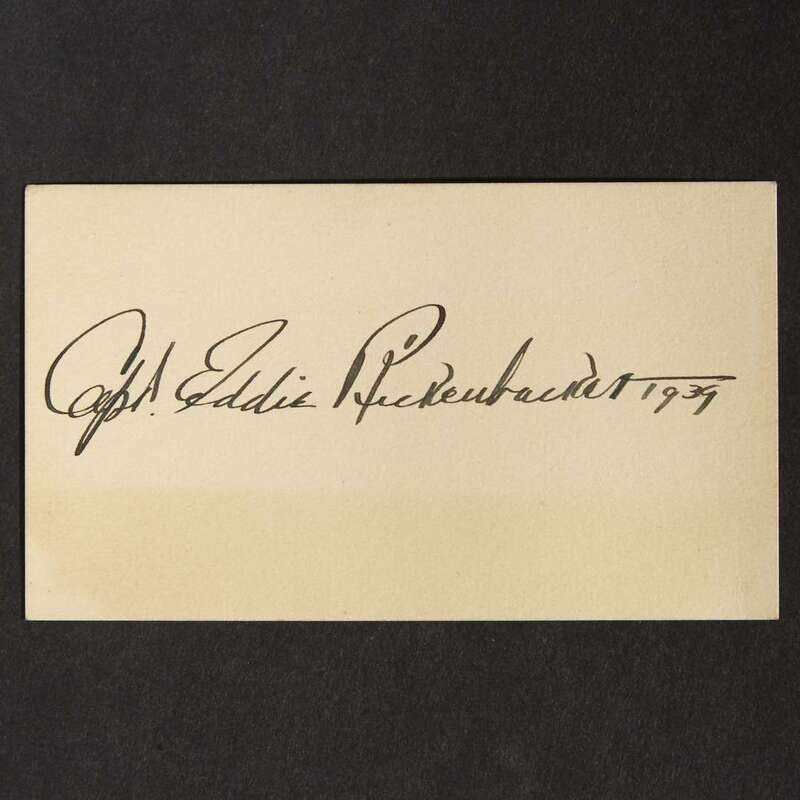 Capt. Eddie Rickenbacker 1939